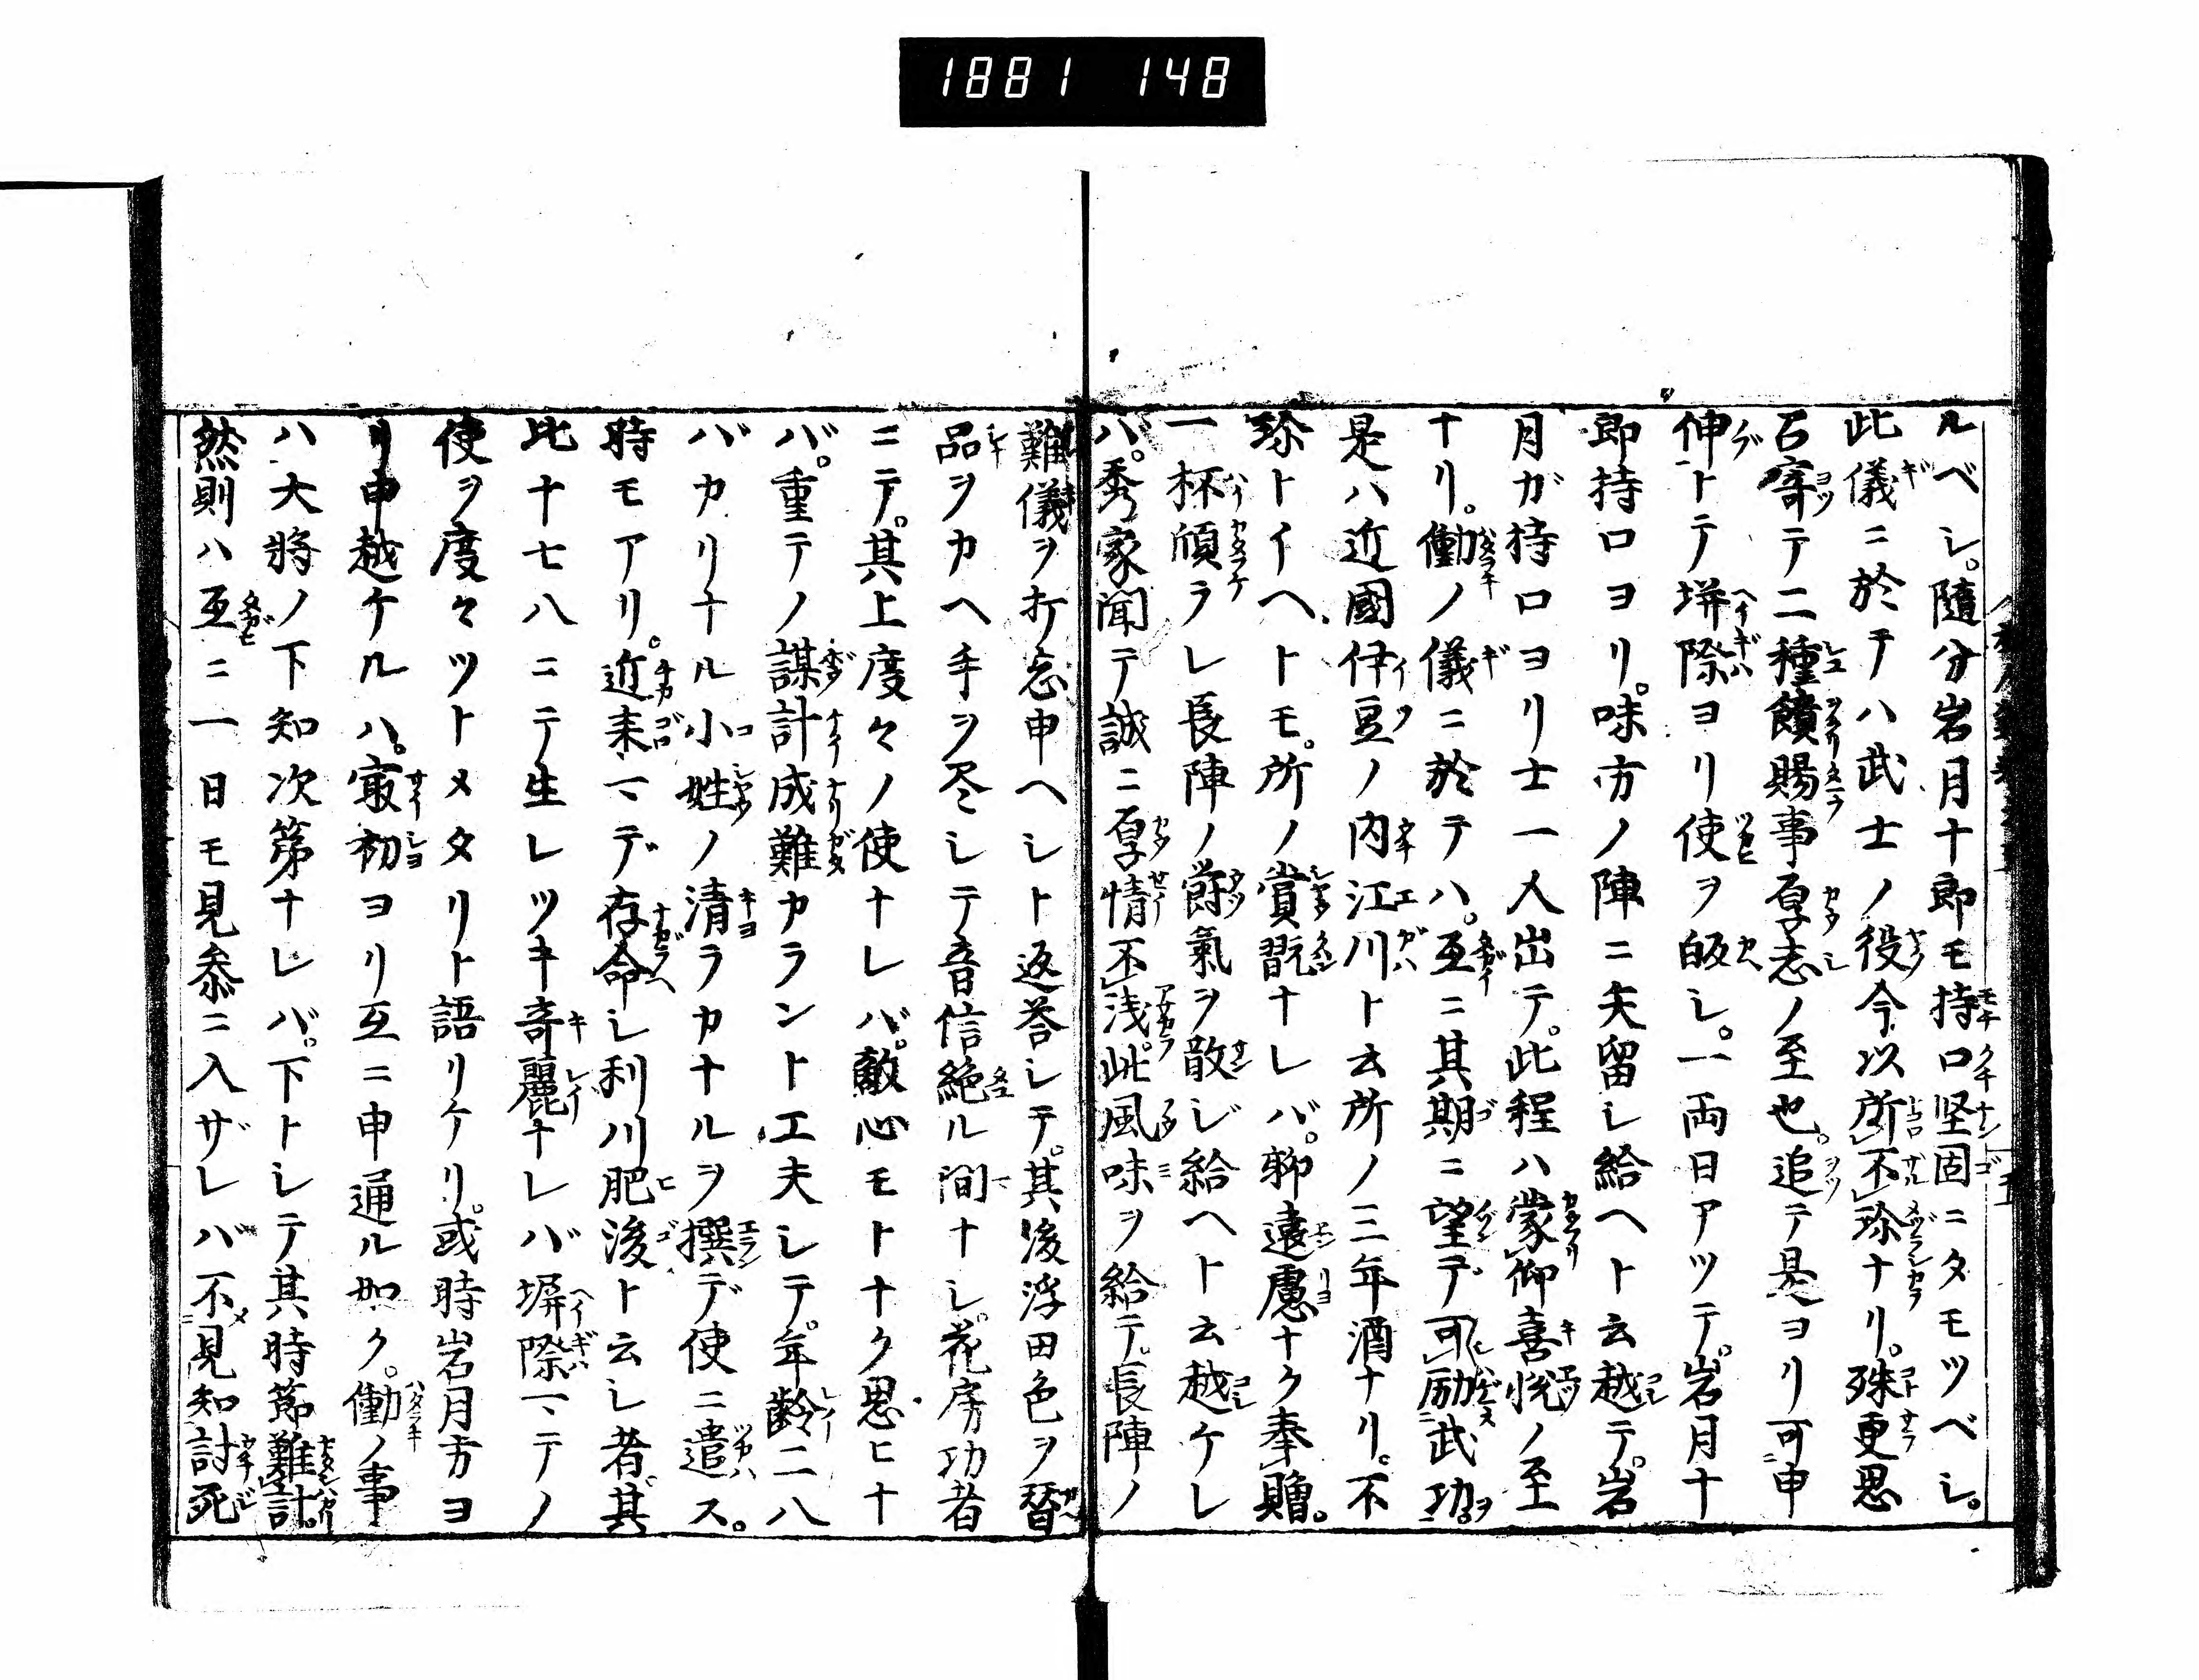 1881 148
ルベシ。隨分岩月十郎モ持口堅固ニタモツベシ。
此儀ニ於テハ武士ノ役今以所不珍ナリ。殊更思
召寄テ二種饋賜事厚志ノ至也。追テ是ヨリ可申
伸トテ塀際ヨリ使ヲ皈シ。一両日アツテ。岩月十
郎持口ヨリ。味方ノ陣ニ矢留シ給ヘト云越テ。岩
月ガ持口ヨリ士一人出テ。此程ハ蒙仰喜悦ノ至
ナリ。働ノ儀ニ於テハ。互ニ其期ニ望デ可励武功。
是ハ近國伊豆ノ内江川ト云所ノ三年酒ナリ。不
珍トイヘトモ。所ノ賞翫ナレバ。聊遠慮ナク奉贈。
一杯傾ラレ長陣ノ欝氣ヲ散ジ給ヘト云越ケレ
バ。秀家聞テ誠ニ厚情不浅。此風味ヲ給テ。長陣ノ
難儀ヲ打忘申ヘシト返荅シテ。其後浮田色ヲ替
品ヲカヘ手ヲ尽シテ音信絶ル間ナシ。花房功者
ニテ。其上度々ノ使ナレバ。敵心モトナク思ヒナ
バ。重テノ謀計成難カラント工夫シテ。年齢二八
バカリナル小姓ノ清ラカナルヲ撰デ使ニ遣ス。
時モアリ。近来マデ存命シ利川肥後ト云シ者。其
比十七八ニテ生レツキ竒麗ナレバ塀際マテノ
使ヲ度々ツトメタリト語リケリ。或時岩月方ヨ
リ申越ケルハ。最初ヨリ互ニ申通ル如ク。働ノ事
ハ大將ノ下知次第ナレバ。下トシテ其時節難計。
然則ハ互ニ一日モ見参ニ入ザレバ不見知討死